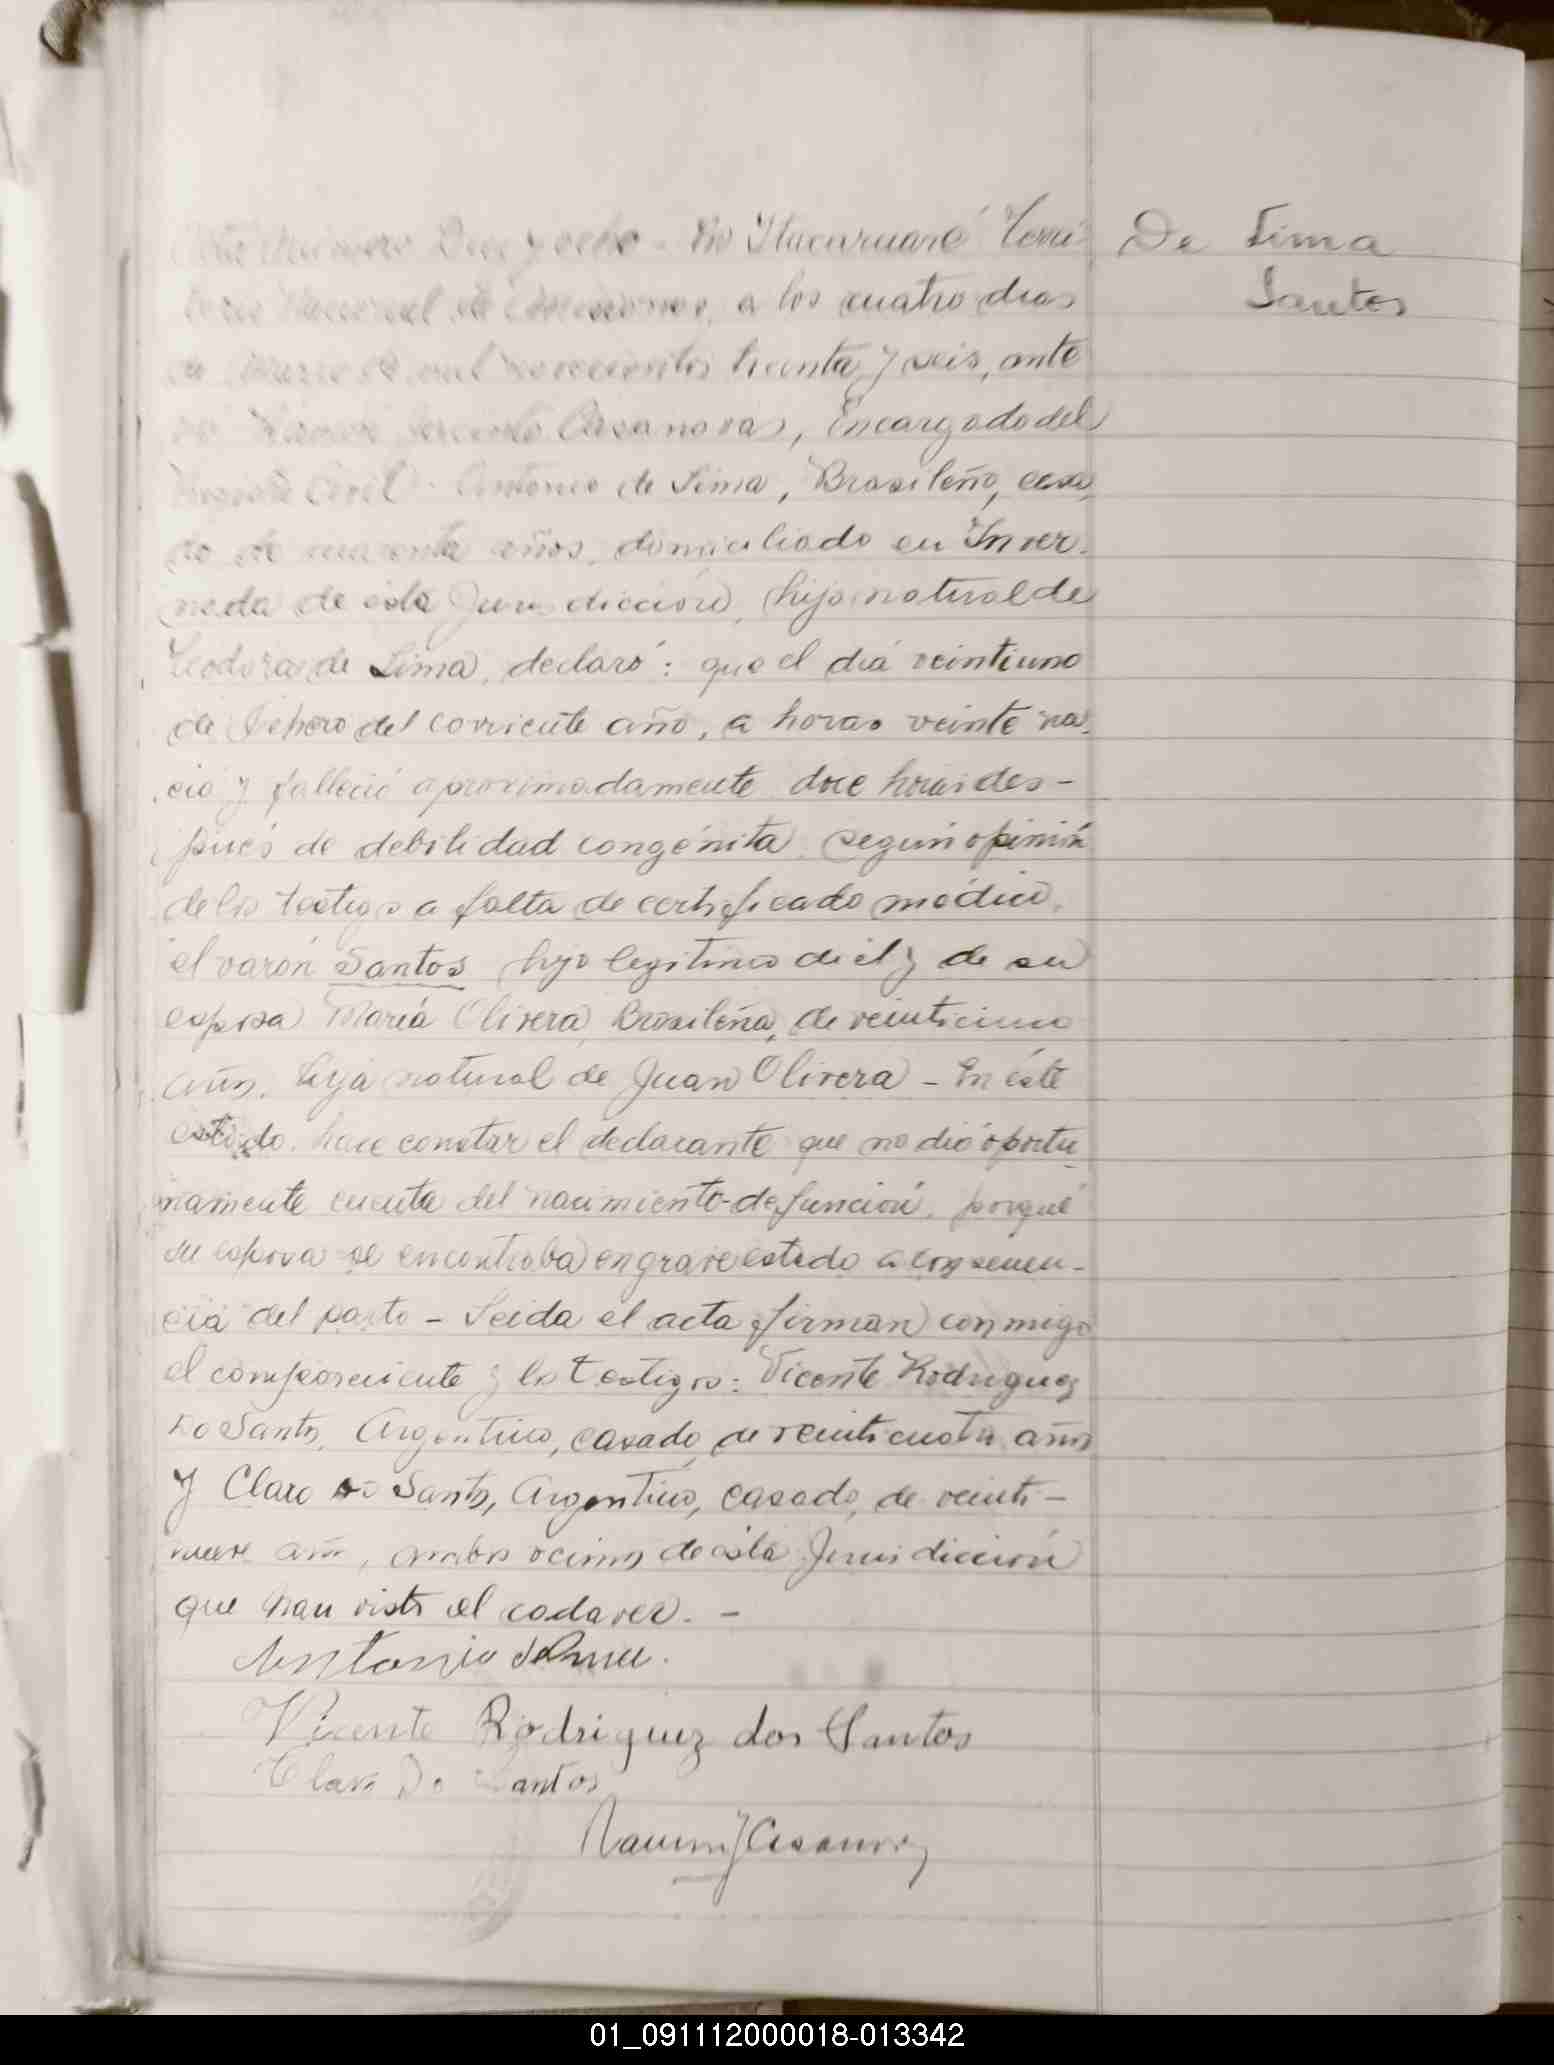 De Lima
Santos
Acta Número Diez y ocho - En Itacaruaré Terri-
torio Nacional de Misiones, a los cuatro dias
de Marzo de mil novecientos treinta y seis, ante
mi Ramón Jacinto Casanovas, Encargado del
Registro Civil - Antonio de Lima, Brasileño, casa-
do de cuarenta años, domiciliado en Inver-
nada de esta Jurisdicción, hijo natural de
Teodora de Lima, declaró: que el dia veintiuno
de Febrero del corriente año, a horas veinte na-
ció y falleció aproximadamente doce horas des-
pués de debilidad congénita, según opinión
de los testigos a falta de certificado médico,
el varón Santos hijo legitimo de él y de su
esposa María Olivera, Brasileña, de veinticinco
años, hija natural de Juan Olivera - En éste
estado, hace constar el declarante que no dió oportu-
namente cuenta del nacimiento-defunción, porqué
su esposa se encontraba en grave estado a consecuen-
cia del parto - Leida el acta firman conmigo
el compareciente y los testigos: Vicente Rodriguez
Do Santos, Argentino, casado, de veinticuatro años
y Claro Do Santos, Argentino, casado, de veinti-
nueve años, ambos vecinos de ésta Jurisdicción
que han visto el cadaver. -
Antonio de Lima.
Vicente Rodriguez dos Santos
Claro Do Santos
Ramón J Casanovas
01_091112000018-013342